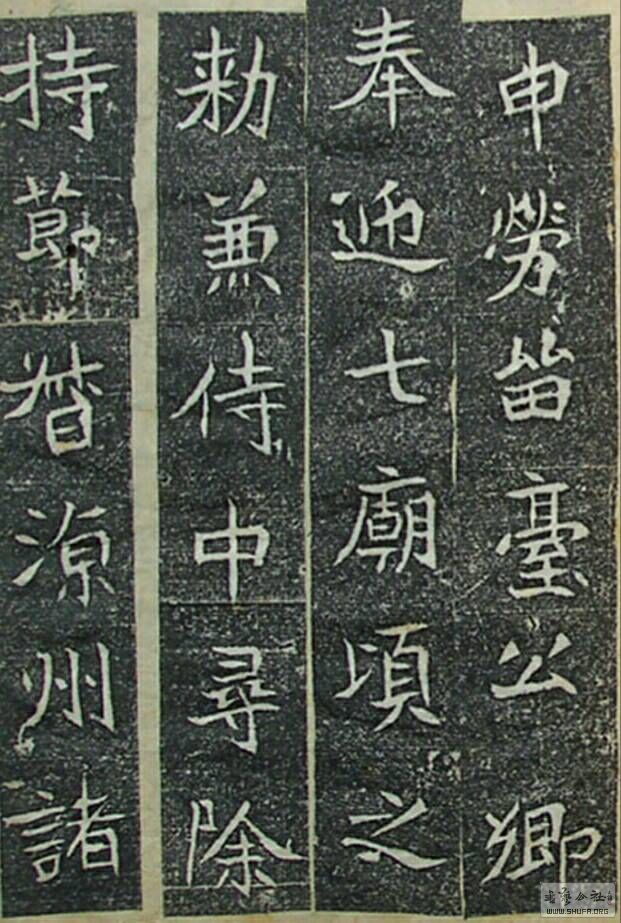 申勞留臺公卿
奉迎七廟頃之
勑兼侍中尋除
持節督涼州諸
书艺公社
WWW.SHUFA.ORG